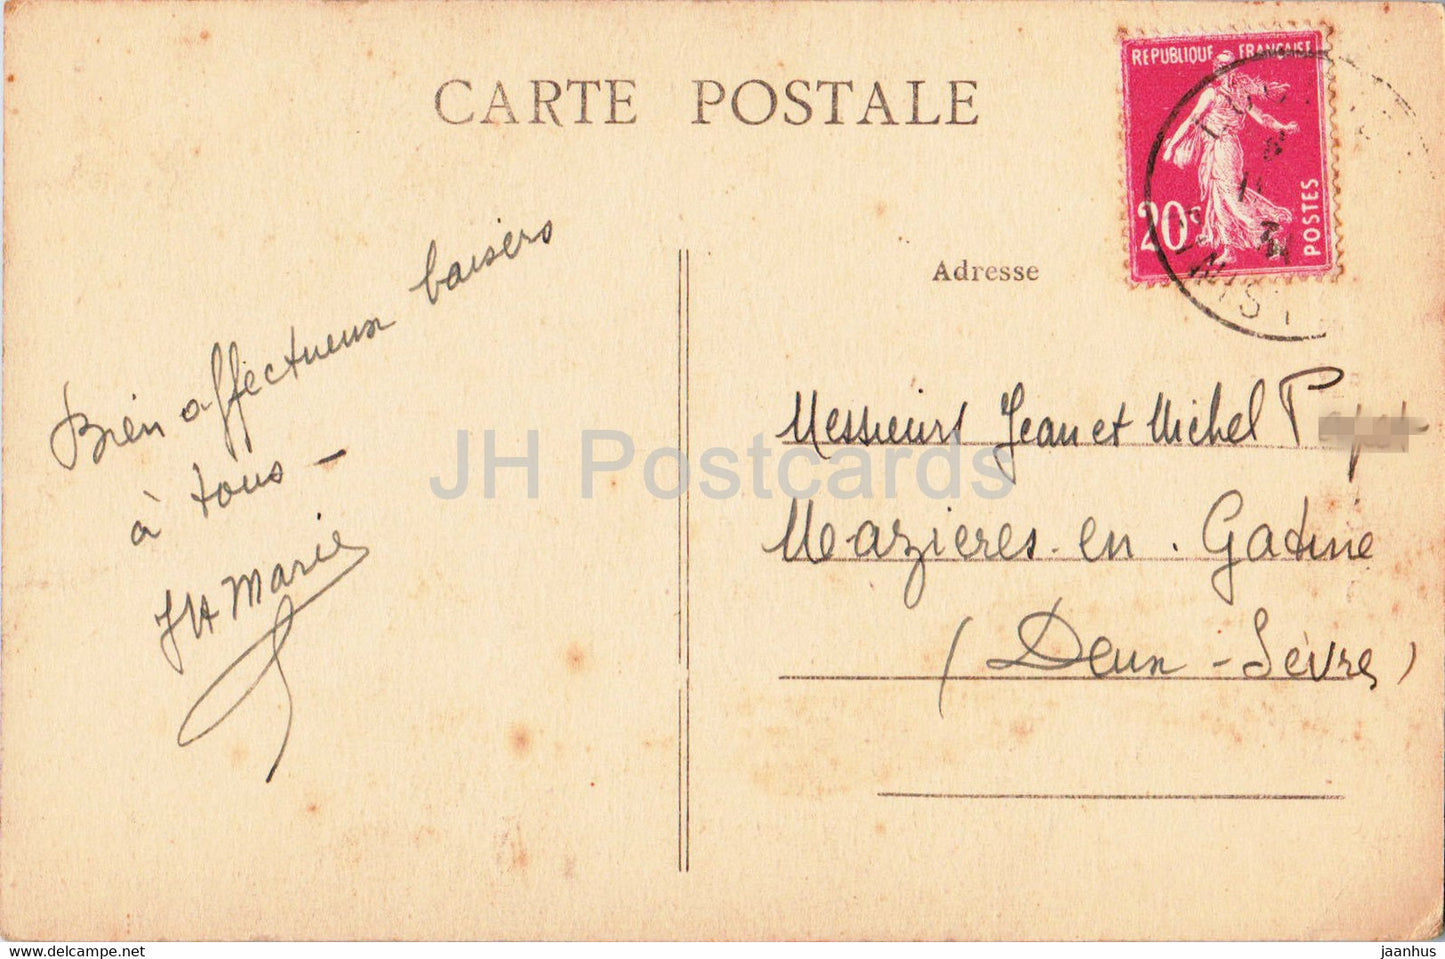 CARTE POSTALE
REPUBLIQUE FRANÇAISE
20c
POSTES
Adresse
Bien affectueux baisers
à tous -
JH Marie
Messieurs Jean et Michel
Mazieres. en. Gatine
(Deux - Sèvres)
JH Postcards
hippostcard.net
jaanhus